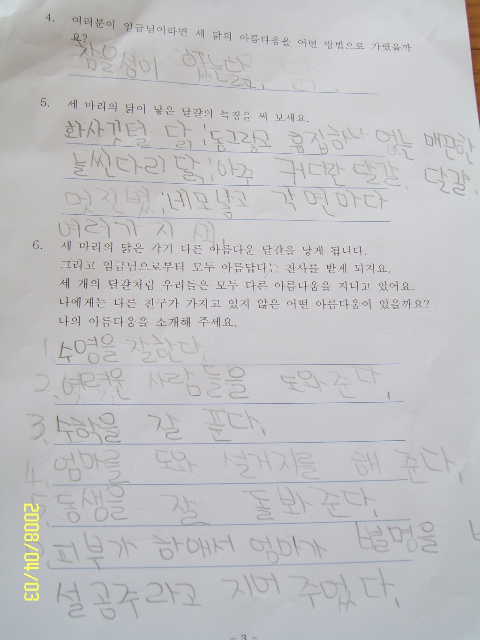 4. 여러분이 임금님이라면 세 닭의 아름다움을 어떤 방법으로 가렸을까
요?
참을성이 있는닭.
5. 세 마리의 닭이 낳은 달걀의 특징을 써 보세요.
화사깃털 닭;동그랗고 흠집하나 없는 매끈한
늘씬다리닭;아주 커다란 달걀. 달걀.
멋진볏;네모낳고 각 면마다
여러가지 색.
6. 세 마리의 닭은 각기 다른 아름다운 달걀을 낳게 됩니다.
그리고 임금님으로부터 모두 아름답다는 찬사를 받게 되지요.
세 개의 달걀처럼 우리들은 모두 다른 아름다움을 지니고 있어요.
나에게는 다른 친구가 가지고 있지 않은 어떤 아름다움이 있을까요?
나의 아름다움을 소개해 주세요.
1. 수영을 잘한다.
2. 어려운 사람들을 도와준다.
3. 수학을 잘 푼다.
4. 엄마를 도와 설거지를 해 준다.
동생을 잘 돌봐준다.
피부가 하애서 엄마가 별명을
설공주라고 지어 주었다.
2008/04/03
- 3 -